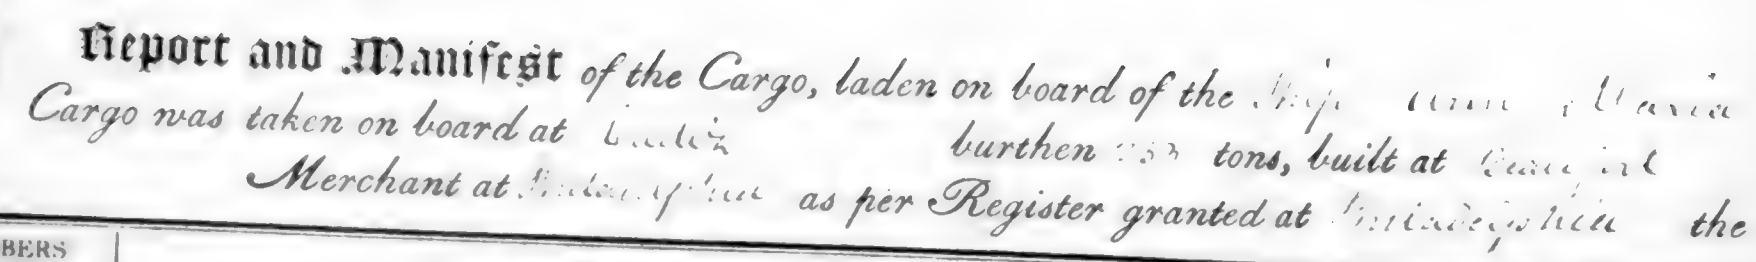 Report and Manifest of the Cargo, laden on board of the Ship Ann Maria
Cargo was taken on board at Cadiz burthen tons, built at
Merchant at Philadelphia as per Register granted at Philadelphia the
BERS